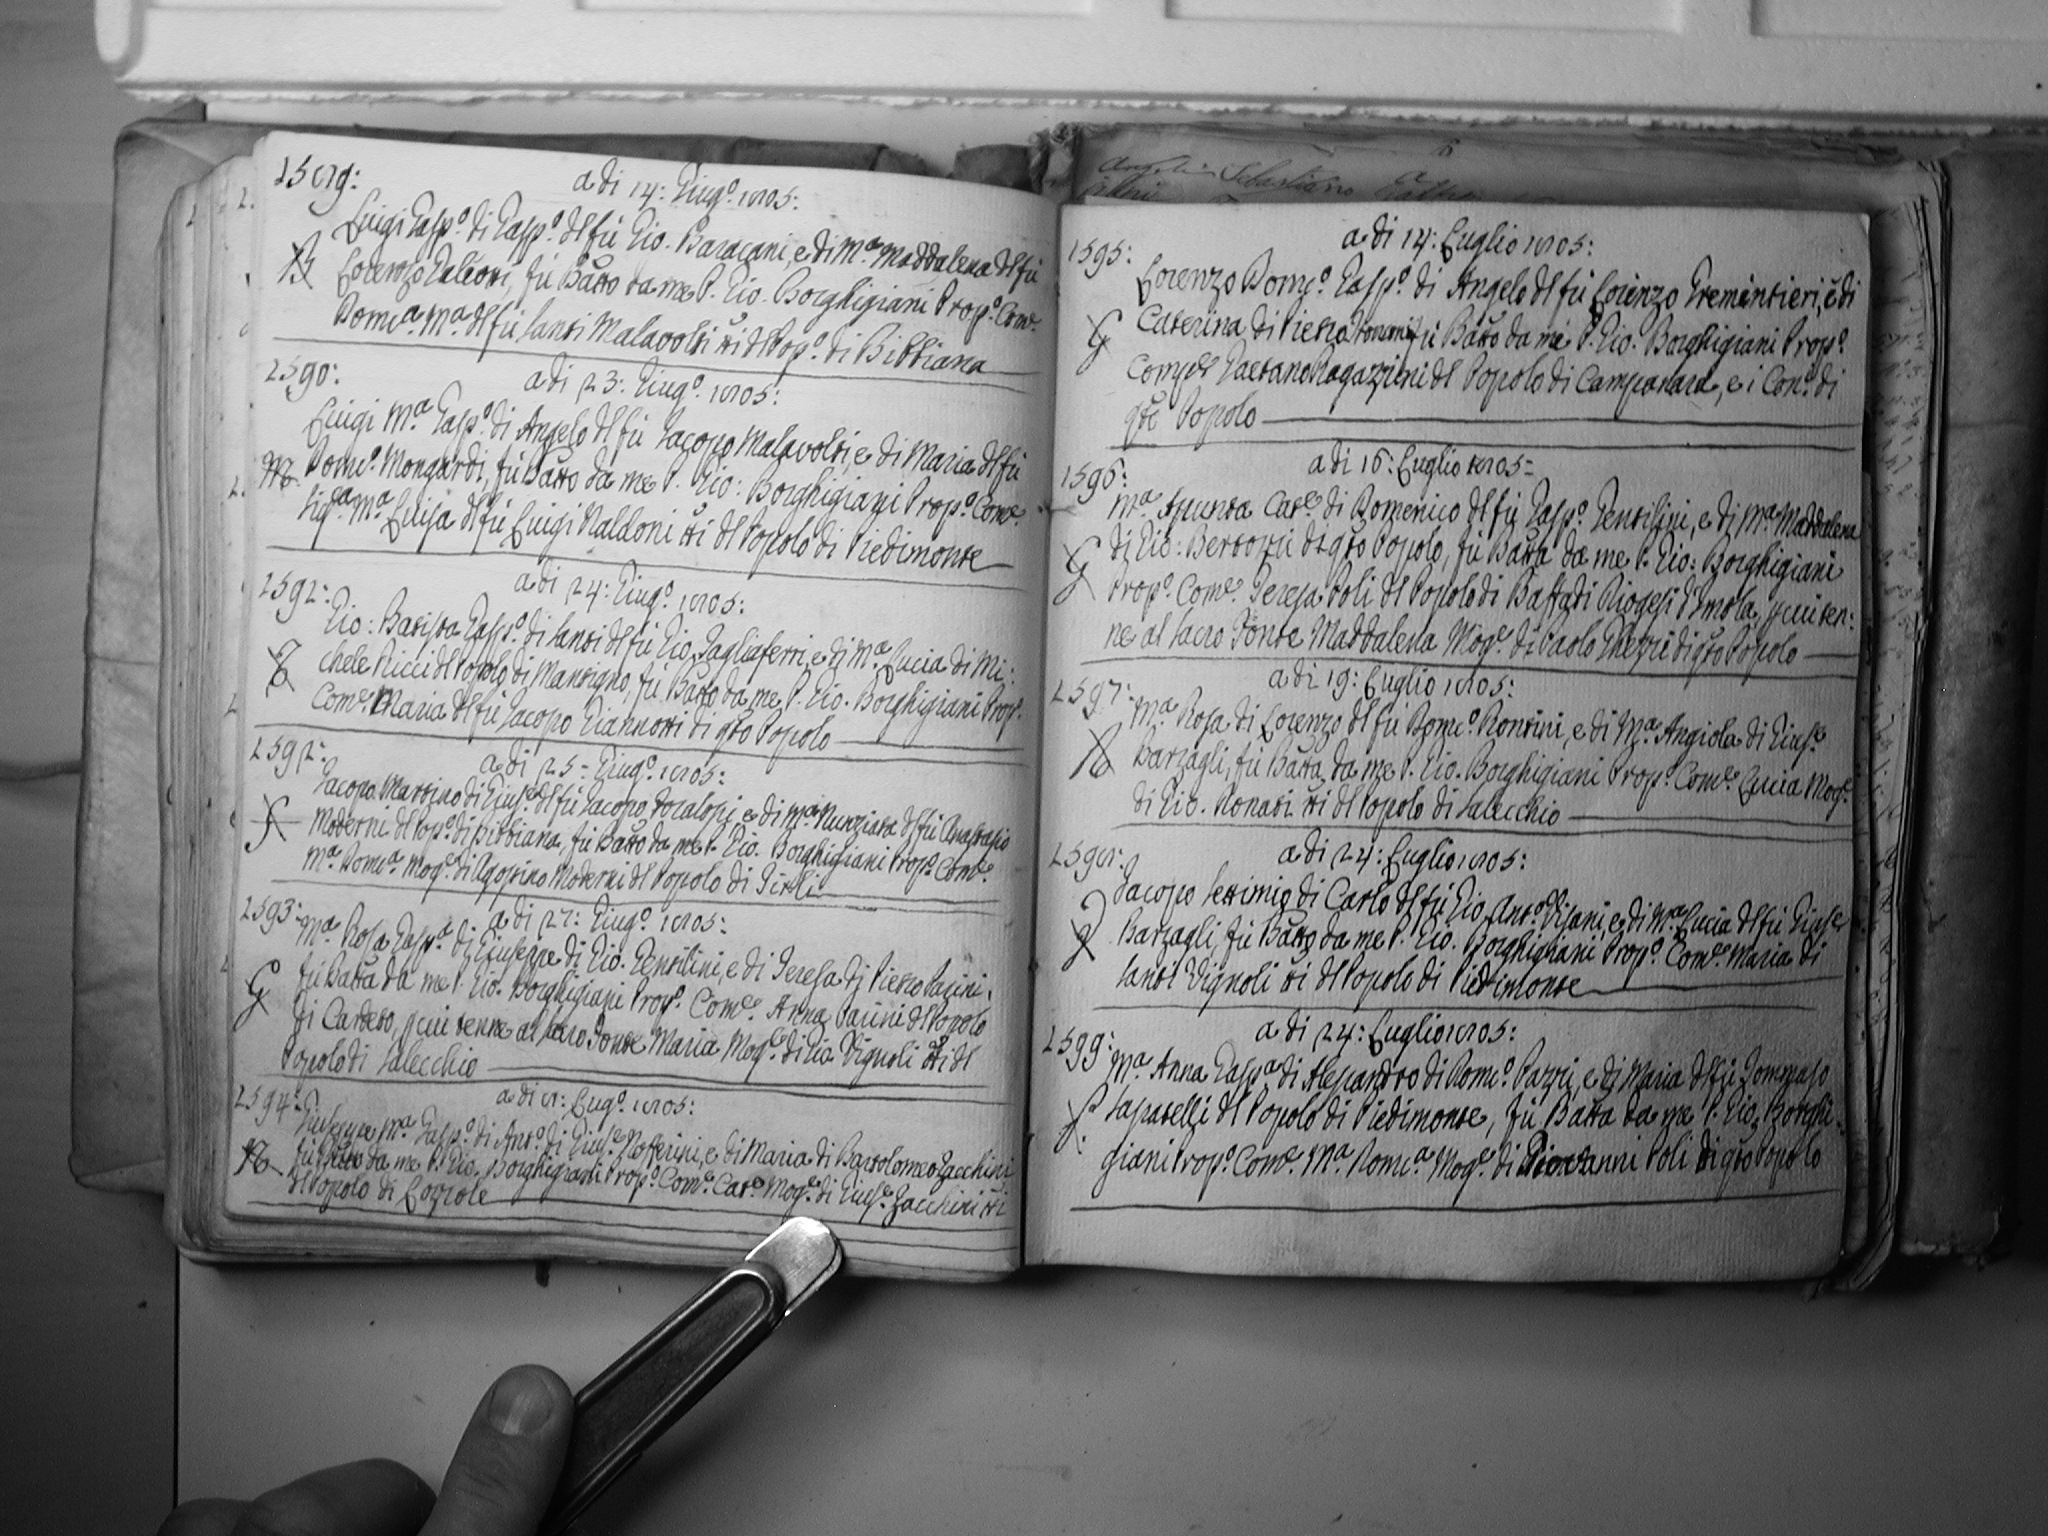 2589:
a di 14: Giug.º 1805:
Luigi Gasp.º di Gasp.º dl fù Gio. Baracani, e di M.ª Maddalena dl fù
B Lorenzo Galeotti, fù Batto da me P. Gio. Borghigiani Prop.º Com.e
Dom.ca M.ª dl fù Santi Malavolti tti dl Pop.º di Bibbiana
2590:
a di 23: Giug.º 1805:
Luigi M.ª Gasp.º di Angelo dl fù Jacopo Malavolti, e di Maria dl fù
M Dom.co Mongardi, fù Batto da me P. Gio: Borghigiani Prop.º Com.e
Sig.ra M.ª Luisa dl fù Luigi Naldoni tti dl Popolo di Piedimonte
2591:
a di 24: Giug.º 1805:
Gio: Batista Gasp.º di Santi dl fù Gio. Tagliaferri, e di M.ª Lucia di Mi:
T chele Ricci dl Popolo di Mantigno, fù Batto da me P. Gio. Borghigiani Prop.º
Com.e Maria dl fù Jacopo Giannotti di qto Popolo
2592:
a di 25: Giug.º 1805:
Jacopo Martino di Gius.e dl fù Jacopo e di M.ª Nunziata dl fù Anastasio
Moderni dl Pop.º di Bibbiana, fù Batto da me P. Gio. Borghigiani Prop.º Com.e
M.ª Dom.ca Mog.e di Agostino Moderni dl Popolo di Tirli
2593:
a di 27: Giug.º 1805:
M.ª Rosa Gasp.ª di Giuseppe di Gio. Gentilini, e di Teresa di Pietro Parini.
G fù Batta da me P. Gio. Borghigiani Prop.º Com.e Anna Parini dl Popolo
di Cardeto, p cui tenne al Sacro Fonte Maria Mog.e di Gio Vignoli tti dl
Popolo di Salecchio
2594:
a di 8: Lug.º 1805:
Giuseppe M.ª Gasp.º di Ant.º di Gius.e Nofferini, e di Maria di Bartolomeo Zacchini
N fù Batto da me P. Gio. Borghigiani Prop.º Com.e Cat.a Mog.e di Gius.e Zacchini tti
dl Popolo di Lozzole
a di 14: Luglio 1805:
1595:
Lorenzo Dom.co Gasp.º di Angelo dl fù Lorenzo Grementieri, e di
G Caterina di Pietro fù Batto da me P. Gio. Borghigiani Prop.º
Comp.e Gaetano Ragazzini dl Popolo di Campanara, e i Con.i di
qto Popolo
a di 16: Luglio 1805=
1596:
M.ª Assunta Cat.a di Domenico dl fù Gasp.º Gentilini, e di M.ª Maddalena
G di Gio: Bertozzi di qto Popolo, fù Batta da me P. Gio: Borghigiani
Prop.º Com.e Teresa Poli dl Popolo di Baffadi Diogesi d'Imola, p cui ten:
ne al Sacro Fonte Maddalena Mog.e di Paolo Ghezzi di qto Popolo
a di 19: Luglio 1805:
2597:
M.ª Rosa di Lorenzo dl fù Dom.co Rontini, e di M.ª Angiola di Gius.e
R Barzagli, fù Batta da me P. Gio. Borghigiani Prop.º Com.e Lucia Mog.e
di Gio. Donati tti dl Popolo di Salecchio
a di 24: Luglio 1805:
2598:
Jacopo Settimio di Carlo dl fù Gio. Ant.º Visani, e di M.ª Lucia dl fù Gius.e
V Barzagli, fù Batto da me P. Gio. Borghigiani Prop.º Com.e Maria di
Santi Vignoli tti dl Popolo di Piedimonte
a di 24: Luglio 1805:
2599:
M.ª Anna Gasp.ª di Alessandro di Dom.co Pazzi, e di Maria dl fù Tommaso
P Sapatelli dl Popolo di Piedimonte, fù Batta da me P. Gio. Borghi:
giani Prop.º Com.e M.ª Dom.ca Mog.e di Giovanni Poli di qto Popolo